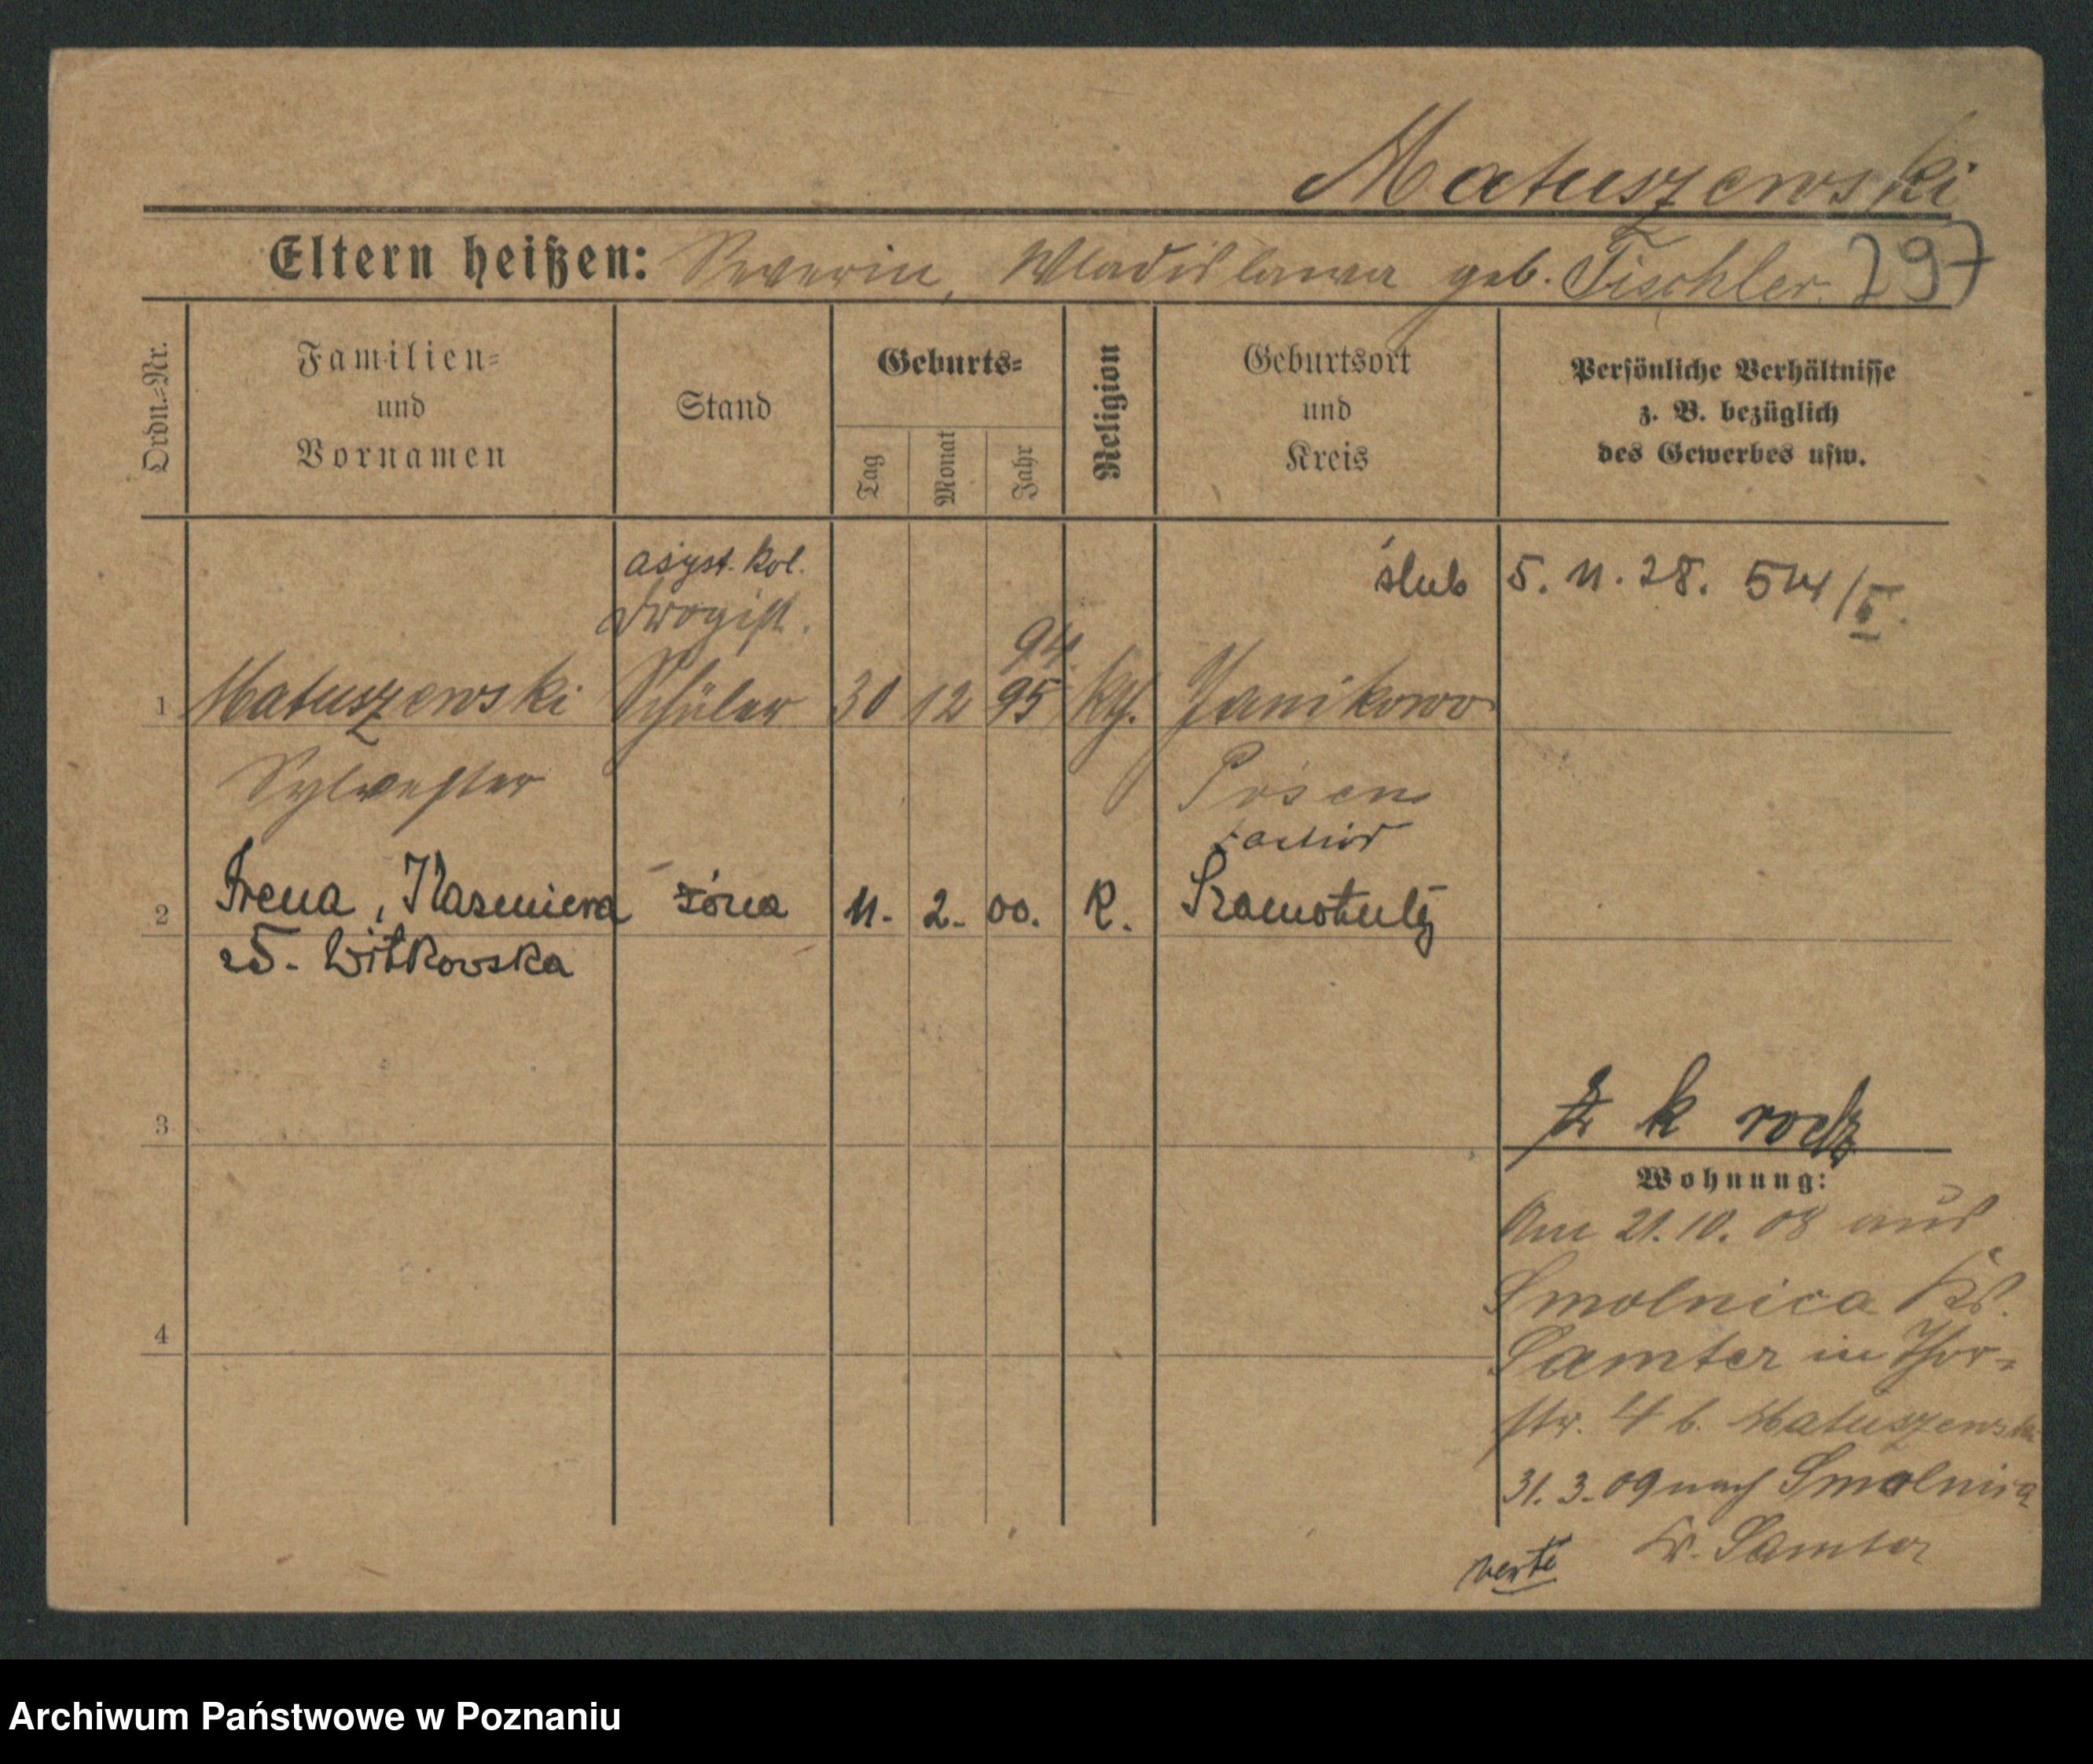 Matuszewski
Eltern heißen: Severin, Wladislawa geb. Tischler. 297
Ordn.=Nr.
Familien=
und
Vornamen
Stand
Geburts=
Tag
Monat
Jahr
Religion
Geburtsort
und
Kreis
Persönliche Verhältnisse
z. B. bezüglich
des Gewerbes usw.
asyst. kol.
ślub 5. 11. 28. 514/II.
Drogist.
94.
1 Matuszewski Schüler 30 12 95 kth. Janikowo
Sylvester Posen
Zachód
2 Irena, Kazmiera żona 11. 2. 00. R. Szamotuły
zd. Witkowska
3
k rodz
Wohnung:
Am 21. 10. 08 aus
Smolnica Ks.
4
Samter in Thor=
str. 4 b. Matuszewska
31. 3. 09 nach Smolnica
Kr. Samter
verte
Archiwum Państwowe w Poznaniu